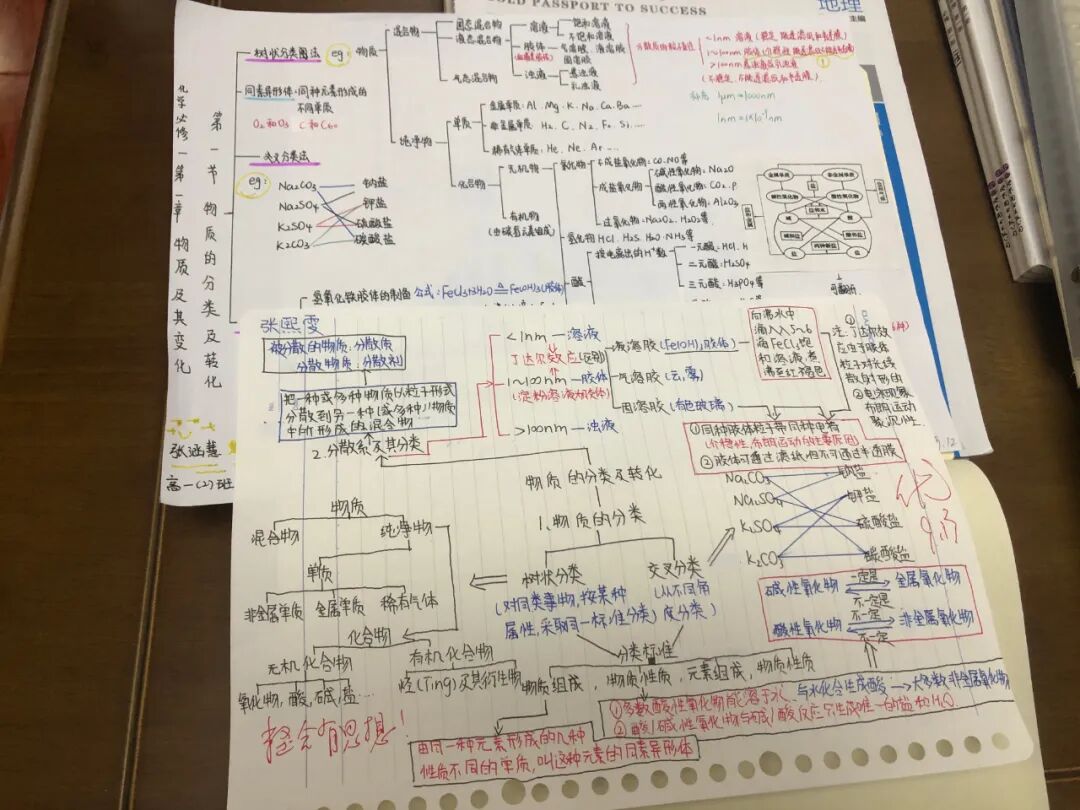 OLD PASSPORT TO SUCCESS
地理
主编
化学必修一第一章 物质及其变化
第一节 物质的分类及转化
树状分类图法
eg:
物质
混合物
固态混合物
液态混合物
气态混合物
溶液
饱和溶液
不饱和溶液
胶体
气溶胶、液溶胶
固溶胶
浊液
悬浊液
乳浊液
分散质的粒子直径
>100nm 悬浊液或乳浊液
1μm=1000nm
同素异形体:同种元素形成的
不同单质
O₂和O₃ C和C₆₀
交叉分类法
eg:
Na₂CO₃
Na₂SO₄
K₂SO₄
K₂CO₃
钠盐
钾盐
硫酸盐
碳酸盐
纯净物
单质
金属单质:Al、Mg、K、Na、Ca、Ba……
非金属单质:H₂、C、N₂、Fe、Si……
稀有气体单质:He、Ne、Ar……
化合物
无机物
有机物
氧化物
不成盐氧化物:CO、NO等
成盐氧化物
碱性氧化物:Na₂O
酸性氧化物:CO₂、P
两性氧化物:Al₂O₃
过氧化物:Na₂O₂、H₂O₂等
氢化物:HCl、H₂S、H₂O、NH₃等
酸
按电离出的H⁺数
一元酸:HCl、H
二元酸:H₂SO₄
三元酸:H₃PO₄等
氢氧化铁胶体的制备
张涵慧
高一(2)班
张熙雯
被分散的物质:分散质
分散物质:分散剂
把一种或多种物质以粒子形式
分散到另一种(或多种)物质
中所形成的混合物
2.分散系及其分类
<1nm—溶液
丁达尔效应(区别)
1~100nm—胶体
(淀粉溶液为胶体)
>100nm—浊液
液溶胶(Fe(OH)₃胶体)
气溶胶(云,雾)
固溶胶(有色玻璃)
向沸水中
滴入5~6
滴FeCl₃饱
和溶液煮
沸至红褐色
注:丁达尔效
应由于胶体
粒子对光线
散射形的
②电泳现象
布朗运动
聚沉性
①同种胶体粒子带同种电荷
(介稳性,布朗运动的主要原因)
②胶体可通过滤纸但不可通过半透膜
物质的分类及转化
1.物质的分类
树状分类
(对同类事物,按某种
属性,采取同一标准分类)
交叉分类
(从不同角
度分类)
Na₂CO₃
Na₂SO₄
K₂SO₄
K₂CO₃
钠盐
钾盐
硫酸盐
碳酸盐
物质
混合物
纯净物
单质
非金属单质
金属单质
稀有气体
化合物
无机化合物
有机化合物
氧化物,酸,碱,盐……
烃(Ting)及其衍生物
分类标准
物质组成,物质性质,元素组成,物质性质
碱性氧化物
一定是
金属氧化物
不一定是
酸性氧化物
不一定
非金属氧化物
不一定
①多数酸性氧化物能溶于水
与水化合生成酸→大多数非金属氧化物
②酸/碱性氧化物与碱/酸反应只生成唯一的盐和H₂O
由同一种元素形成的几种
性质不同的单质,叫这种元素的同素异形体
整合有思想!